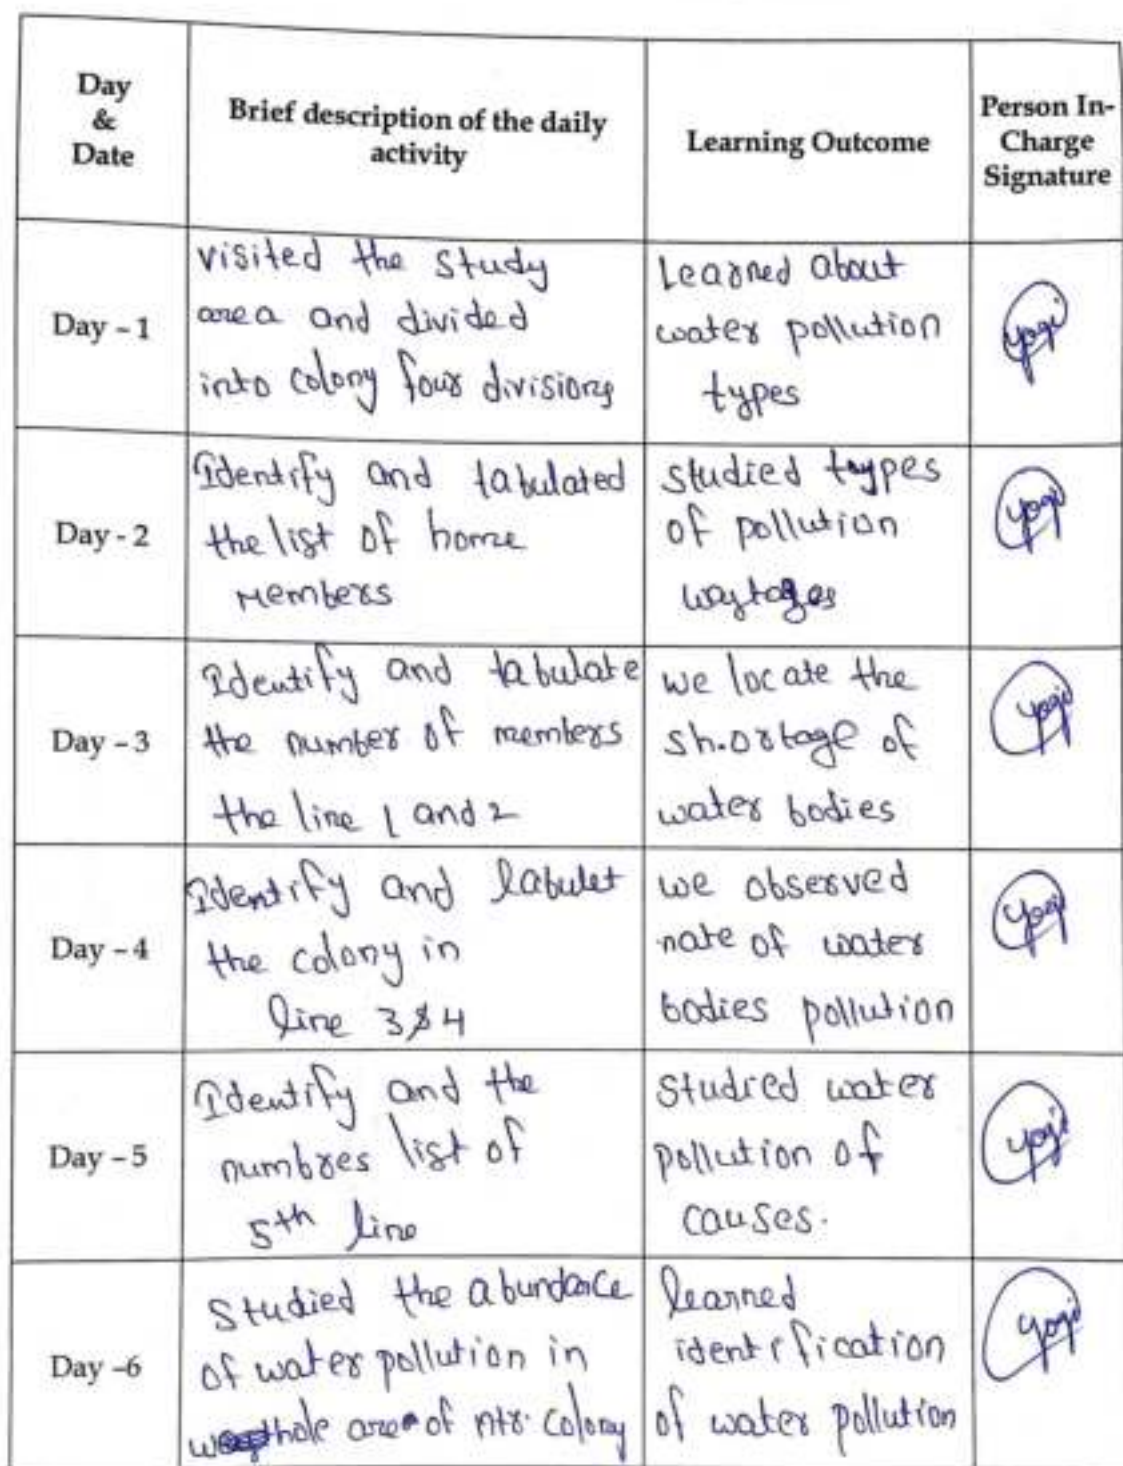 Day
&
Date
Brief description of the daily
activity
Learning Outcome
Person In-
Charge
Signature
Day - 1
visited the study
area and divided
into colony four divisions
Learned about
water pollution
types
yogi
Day - 2
Identify and tabulated
the list of home
members
studied types
of pollution
wastages
yogi
Day - 3
Identify and tabulate
the number of members
the line 1 and 2
we locate the
sh.ortage of
water bodies
yogi
Day - 4
Identify and labulet
the colony in
line 3 & 4
we observed
nate of water
bodies pollution
yogi
Day - 5
Identify and the
numbres list of
5th line
studied water
pollution of
causes.
yogi
Day -6
Studied the abundance
of water pollution in
whole area of ntr. colony
learned
identification
of water pollution
yogi